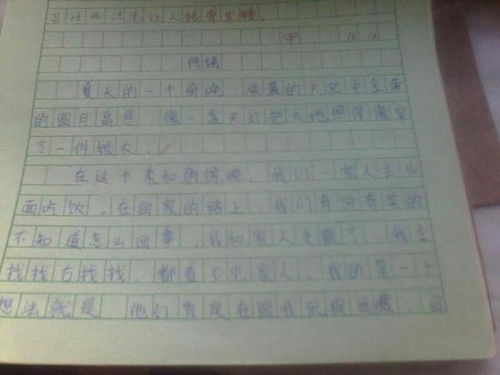 甲
夏天的一个傍晚,蔚蓝的天空中金黄
的圆月高悬,像一盏天灯把大地照得像穿
了一件银衣。
在这个美如的傍晚,我们一家人去外
面吃饭,在回家的路上,我们有说有笑的
不知道怎么回事,我和家人走散了,我左
找找右找找,都看不见家人,我的第一个
想法就是 他们肯定在跟我玩捉迷藏,因